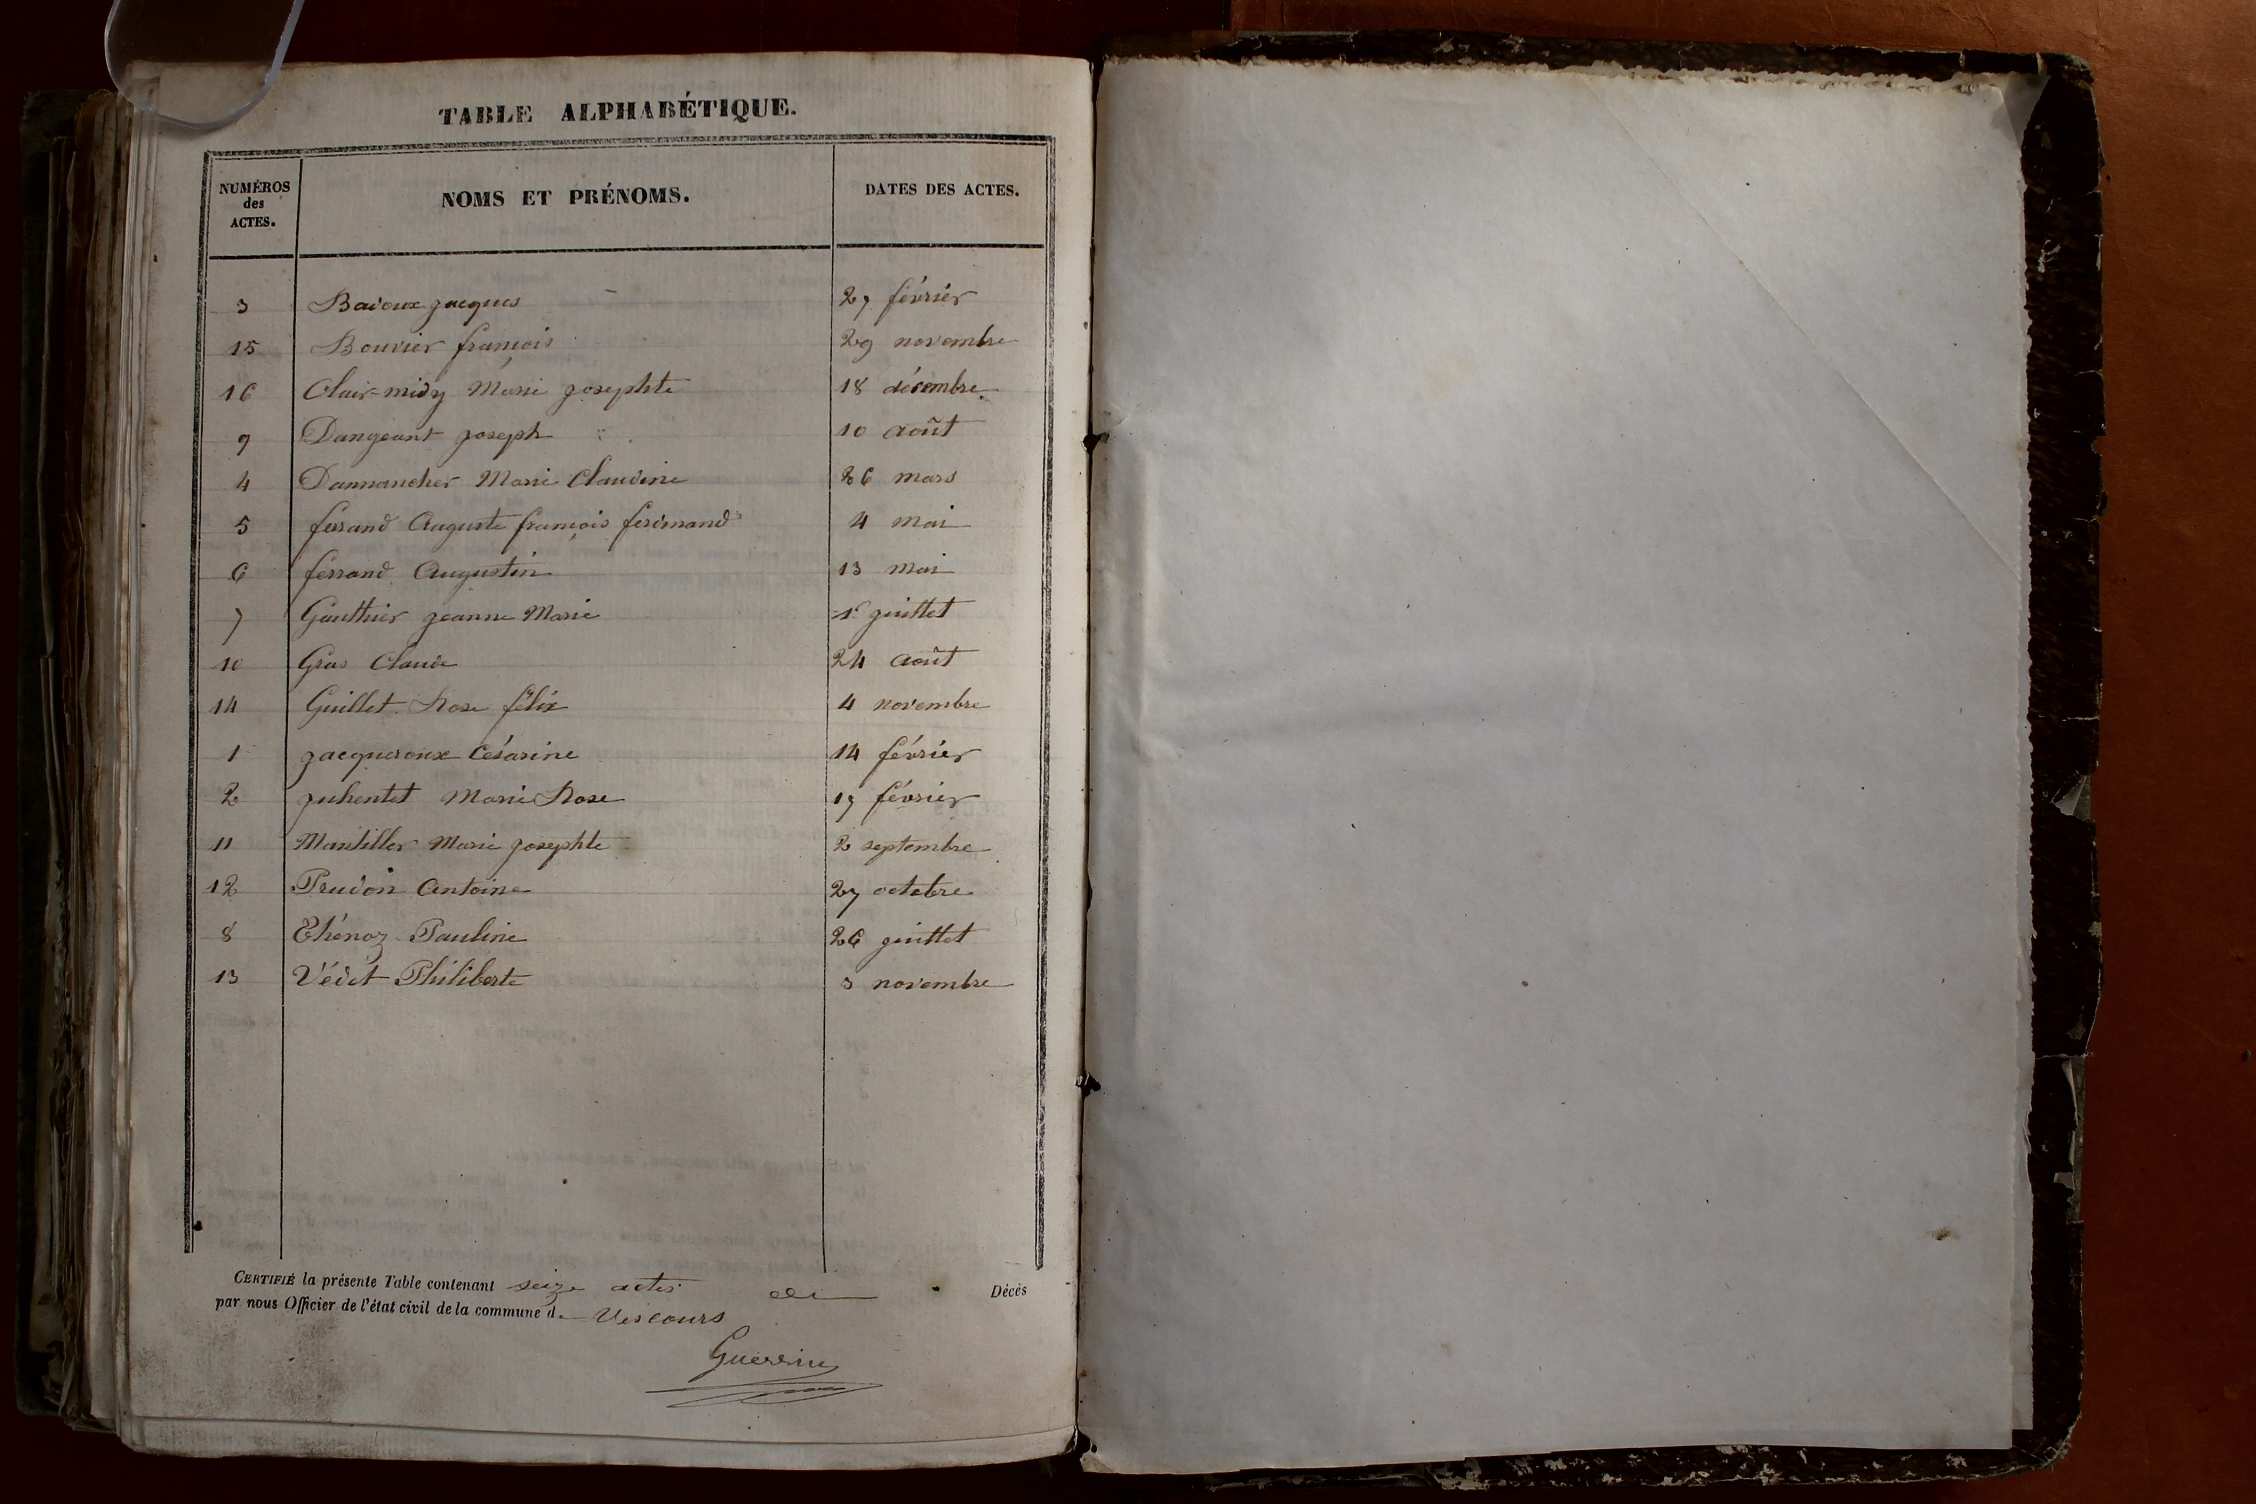 TABLE ALPHABÉTIQUE.
NUMÉROS des ACTES. NOMS ET PRÉNOMS. DATES DES ACTES.
3 Badoux jacques 27 février
15 Bouvier françois 29 novembre
16 Clair-midy Marie josephte 18 décembre
9 Dangeant joseph 10 août
4 Dannancher Marie Claudine 26 mars
5 ferrand Auguste françois ferdinand 4 mai
6 ferrand Augustin 13 mai
7 Gauthier jeanne Marie 1er juillet
10 Gras Claude 24 août
14 Guillet Rose félix 4 novembre
1 jacqueroux Césarine 14 février
2 juhentet Marie Rose 17 février
11 Mantiller Marie josephte 2 septembre
12 Prudon Antoine 27 octobre
8 Thénoz Pauline 26 juillet
13 Védet Philiberte 3 novembre
CERTIFIÉ la présente Table contenant seize actes de Décès
par nous Officier de l'état civil de la commune de Vescours
Guerrin